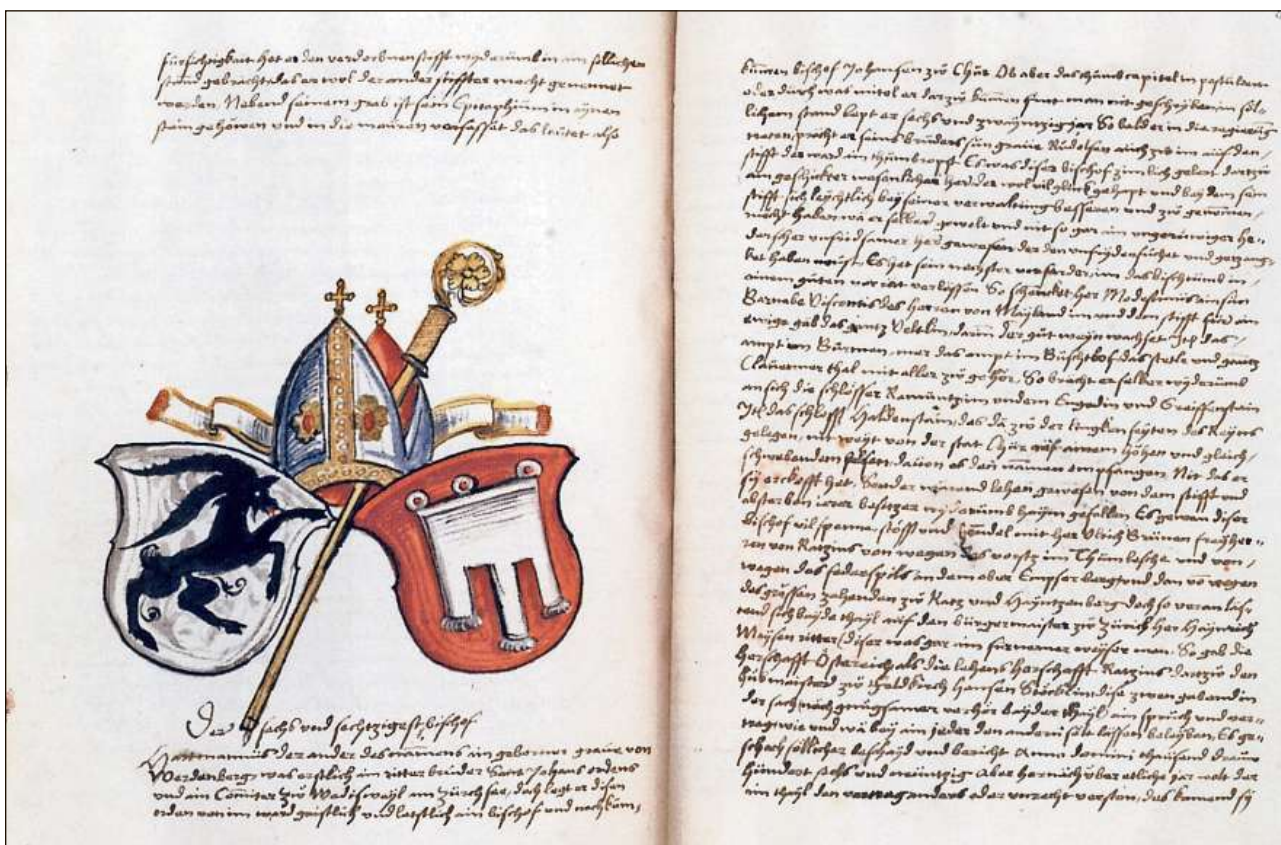 fürsichtigkait het er den verdorbnen stifft wyderumb in ain söllichen
stand gebracht das er wol der ander stiffter macht genennet
werden. Nebend seinem grab ist sein Epitaphium in aynen
stain gehöwen und in die mauren verfasset das leütet also
Der sachs und sechtzigest bischof
Hartmannus der ander des nammens ain geborner graue von
Werdenberg, was erstlich ain ritter bruder Sant Johans ordens
und ain Comitur zu Wadischwyl am Zürchsee, doch legt er disen
orden von im ward gaistlich und letstlich ain bischof und nachkom,
kumen bischof Johansen zu Chur Ob aber das thumbcapitel in postuliert
oder durch was mitel er darzu kumen fint man nit geschryben in söl
lichem stand lept er sachs und zwayntzig jar So bald er in die regierung
tratten, pracht er seins bruders sun graue Rudolfen auch zu im auf den,
stifft der ward im thumbropst Es was diser bischof zimlich gelert dartzu
ain geschickter wesenlicher her der wol vil glück gehapt und bey dem sein
stifft sich leychtlich bey seiner verwaltung besseren und zu genomen,
macht haben wa er selber gewolt und nit so gar ain ungerüwiger he,,
derscher unfridsamer her gewesen der den unfryden suchet und getzang,
ket haben must. Es het sein nachster vorfarder im das bischtumb in,
ainem guten vorrat verlassen So schancket her Mastinus ain sun
Barnabe Viscontis des herren von Mayland im und dem stifft für ain
ewige gab das gantz Veltlin, darin der gut weyn wachset Itl das,
ampt von Burman, mer das ampt im Buschtlof das stetle und gantz
Clauenner thal mit aller zugehör. So bracht er selber wyderumb
an sich die schlösser Ramüntz im undern Engadin und Greiffenstain
Itl das schloss Haldenstain, das da zu der lingken seyten des Reyns
gelegen, nit weyt von der stat Chur auf ainem höhen und gleich,,
schwebenden felsen, davon es den namen empfangen Nit das er
sy erkofft het, Sonder weyl und lehen gewesen von dem stifft und
absterben irer besitzer wyderumb hayim gefallen Es gewan diser
bischof vil spenn, stöss und handel mit her Ulrich Brunen fryher,,
ren von Ratzins von wegen des vorsts im Thumlesche und von,
wegen des federspils an dem ober Emser berg und den von wegen
des grossen zahenden zu Katz und Hayntzenberg doch so veranlass
tend sich bayde thayl auf den burgermaister zu Zürich her Haynrich
Maysen ritter / diser was gar ain fürnemer wayser man. So gab die
herschafft Österreich als die lehens herschafft Ratzins dartzu den
hubmaister zu Feldkirch Hansen Stöcklin, dise zwen gabend in
der sach nach gnugsamer verhör bayder thayl ain spruch und ver,
trag wie und wa bey ain jeder den andern solt lassen belayben, Es ge,
schach söllicher beschayd und bericht Anno domini thausend dreü
hundert sechs und neüntzig Aber hernach über etliche jar wolt der
ain thayl den vertrag anders oder unrecht verstan, des kamend sy